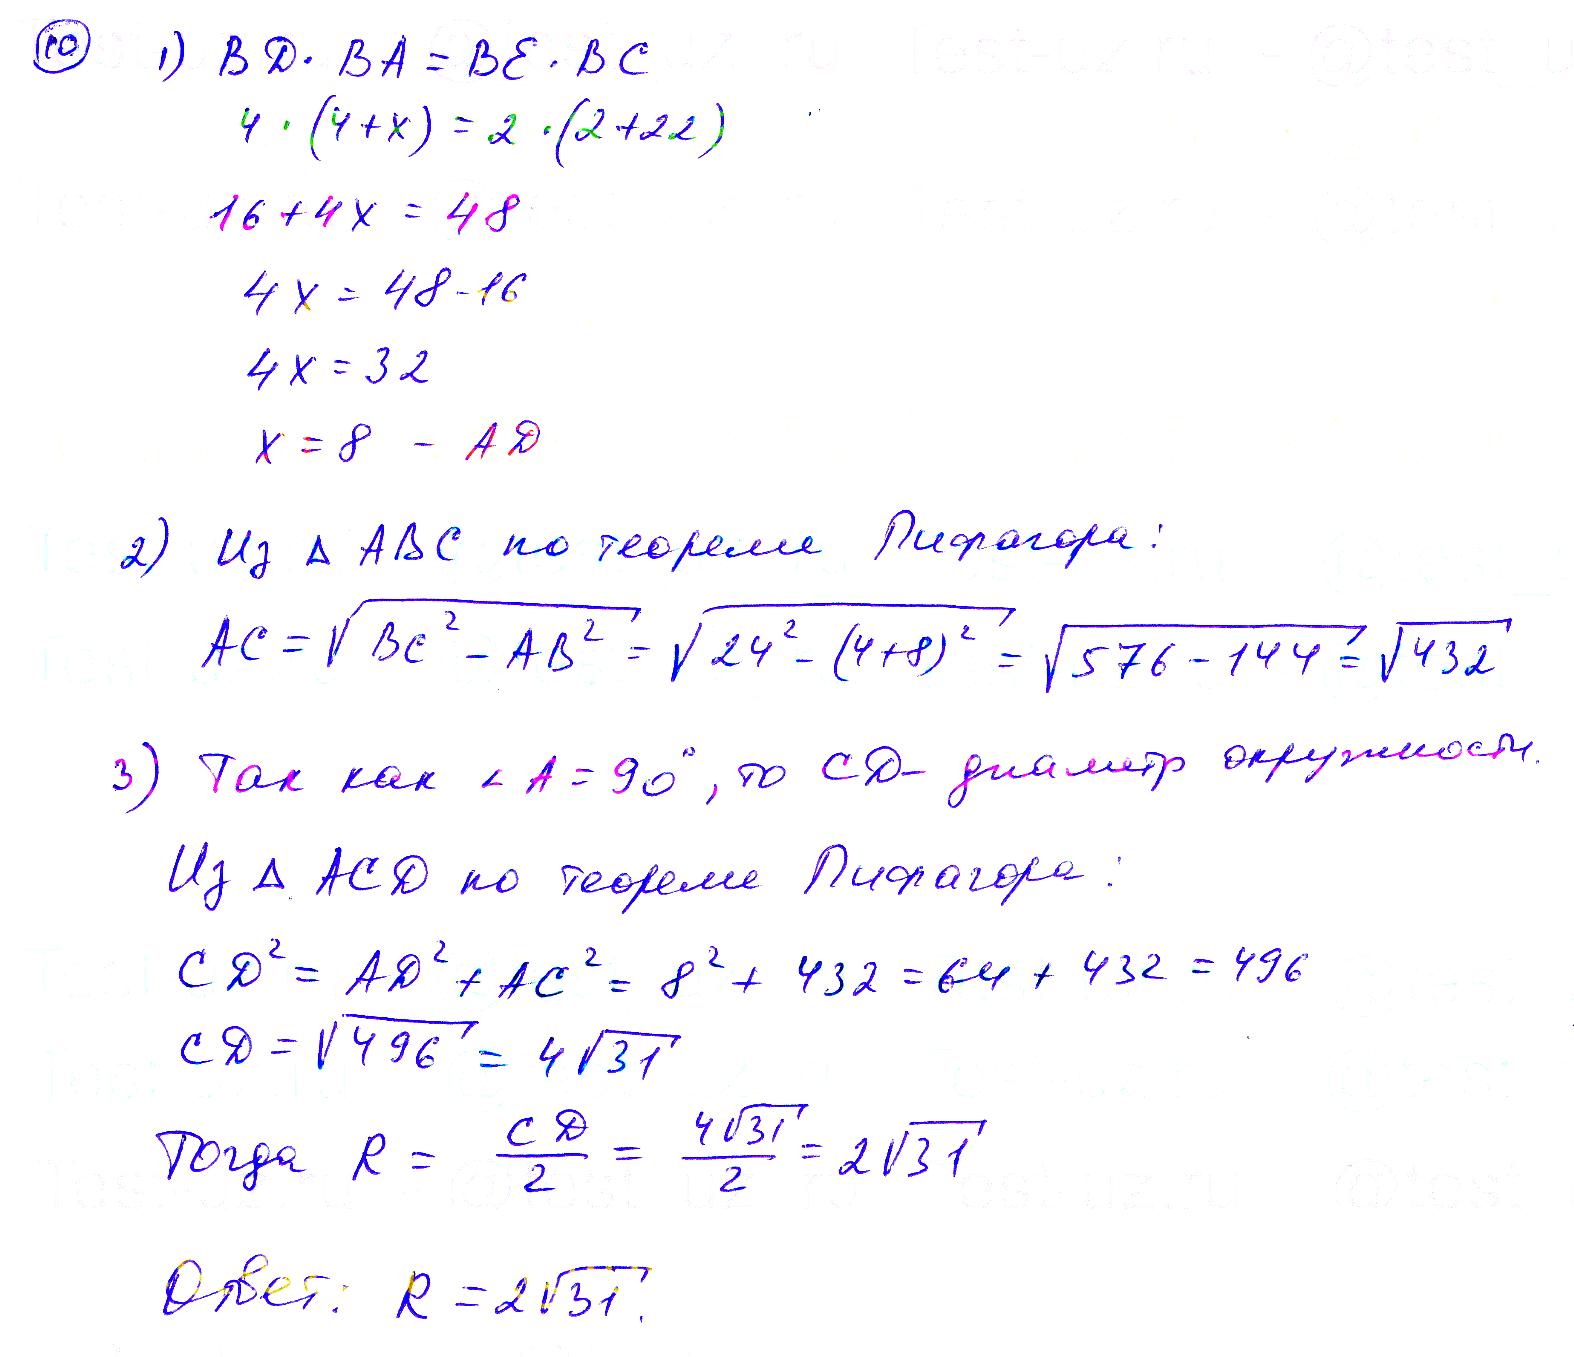 10 1) BD · BA = BE · BC
4 · (4+x) = 2 · (2+22)
16 + 4x = 48
4x = 48 - 16
4x = 32
x = 8 - AD
2) Из Δ ABC по теореме Пифагора:
AC = √(BC² - AB²) = √(24² - (4+8)²) = √(576 - 144) = √432
3) Так как ∠A = 90°, то CD - диаметр окружности.
Из Δ ACD по теореме Пифагора:
CD² = AD² + AC² = 8² + 432 = 64 + 432 = 496
CD = √496 = 4√31
Тогда R = CD/2 = 4√31/2 = 2√31
Ответ: R = 2√31.